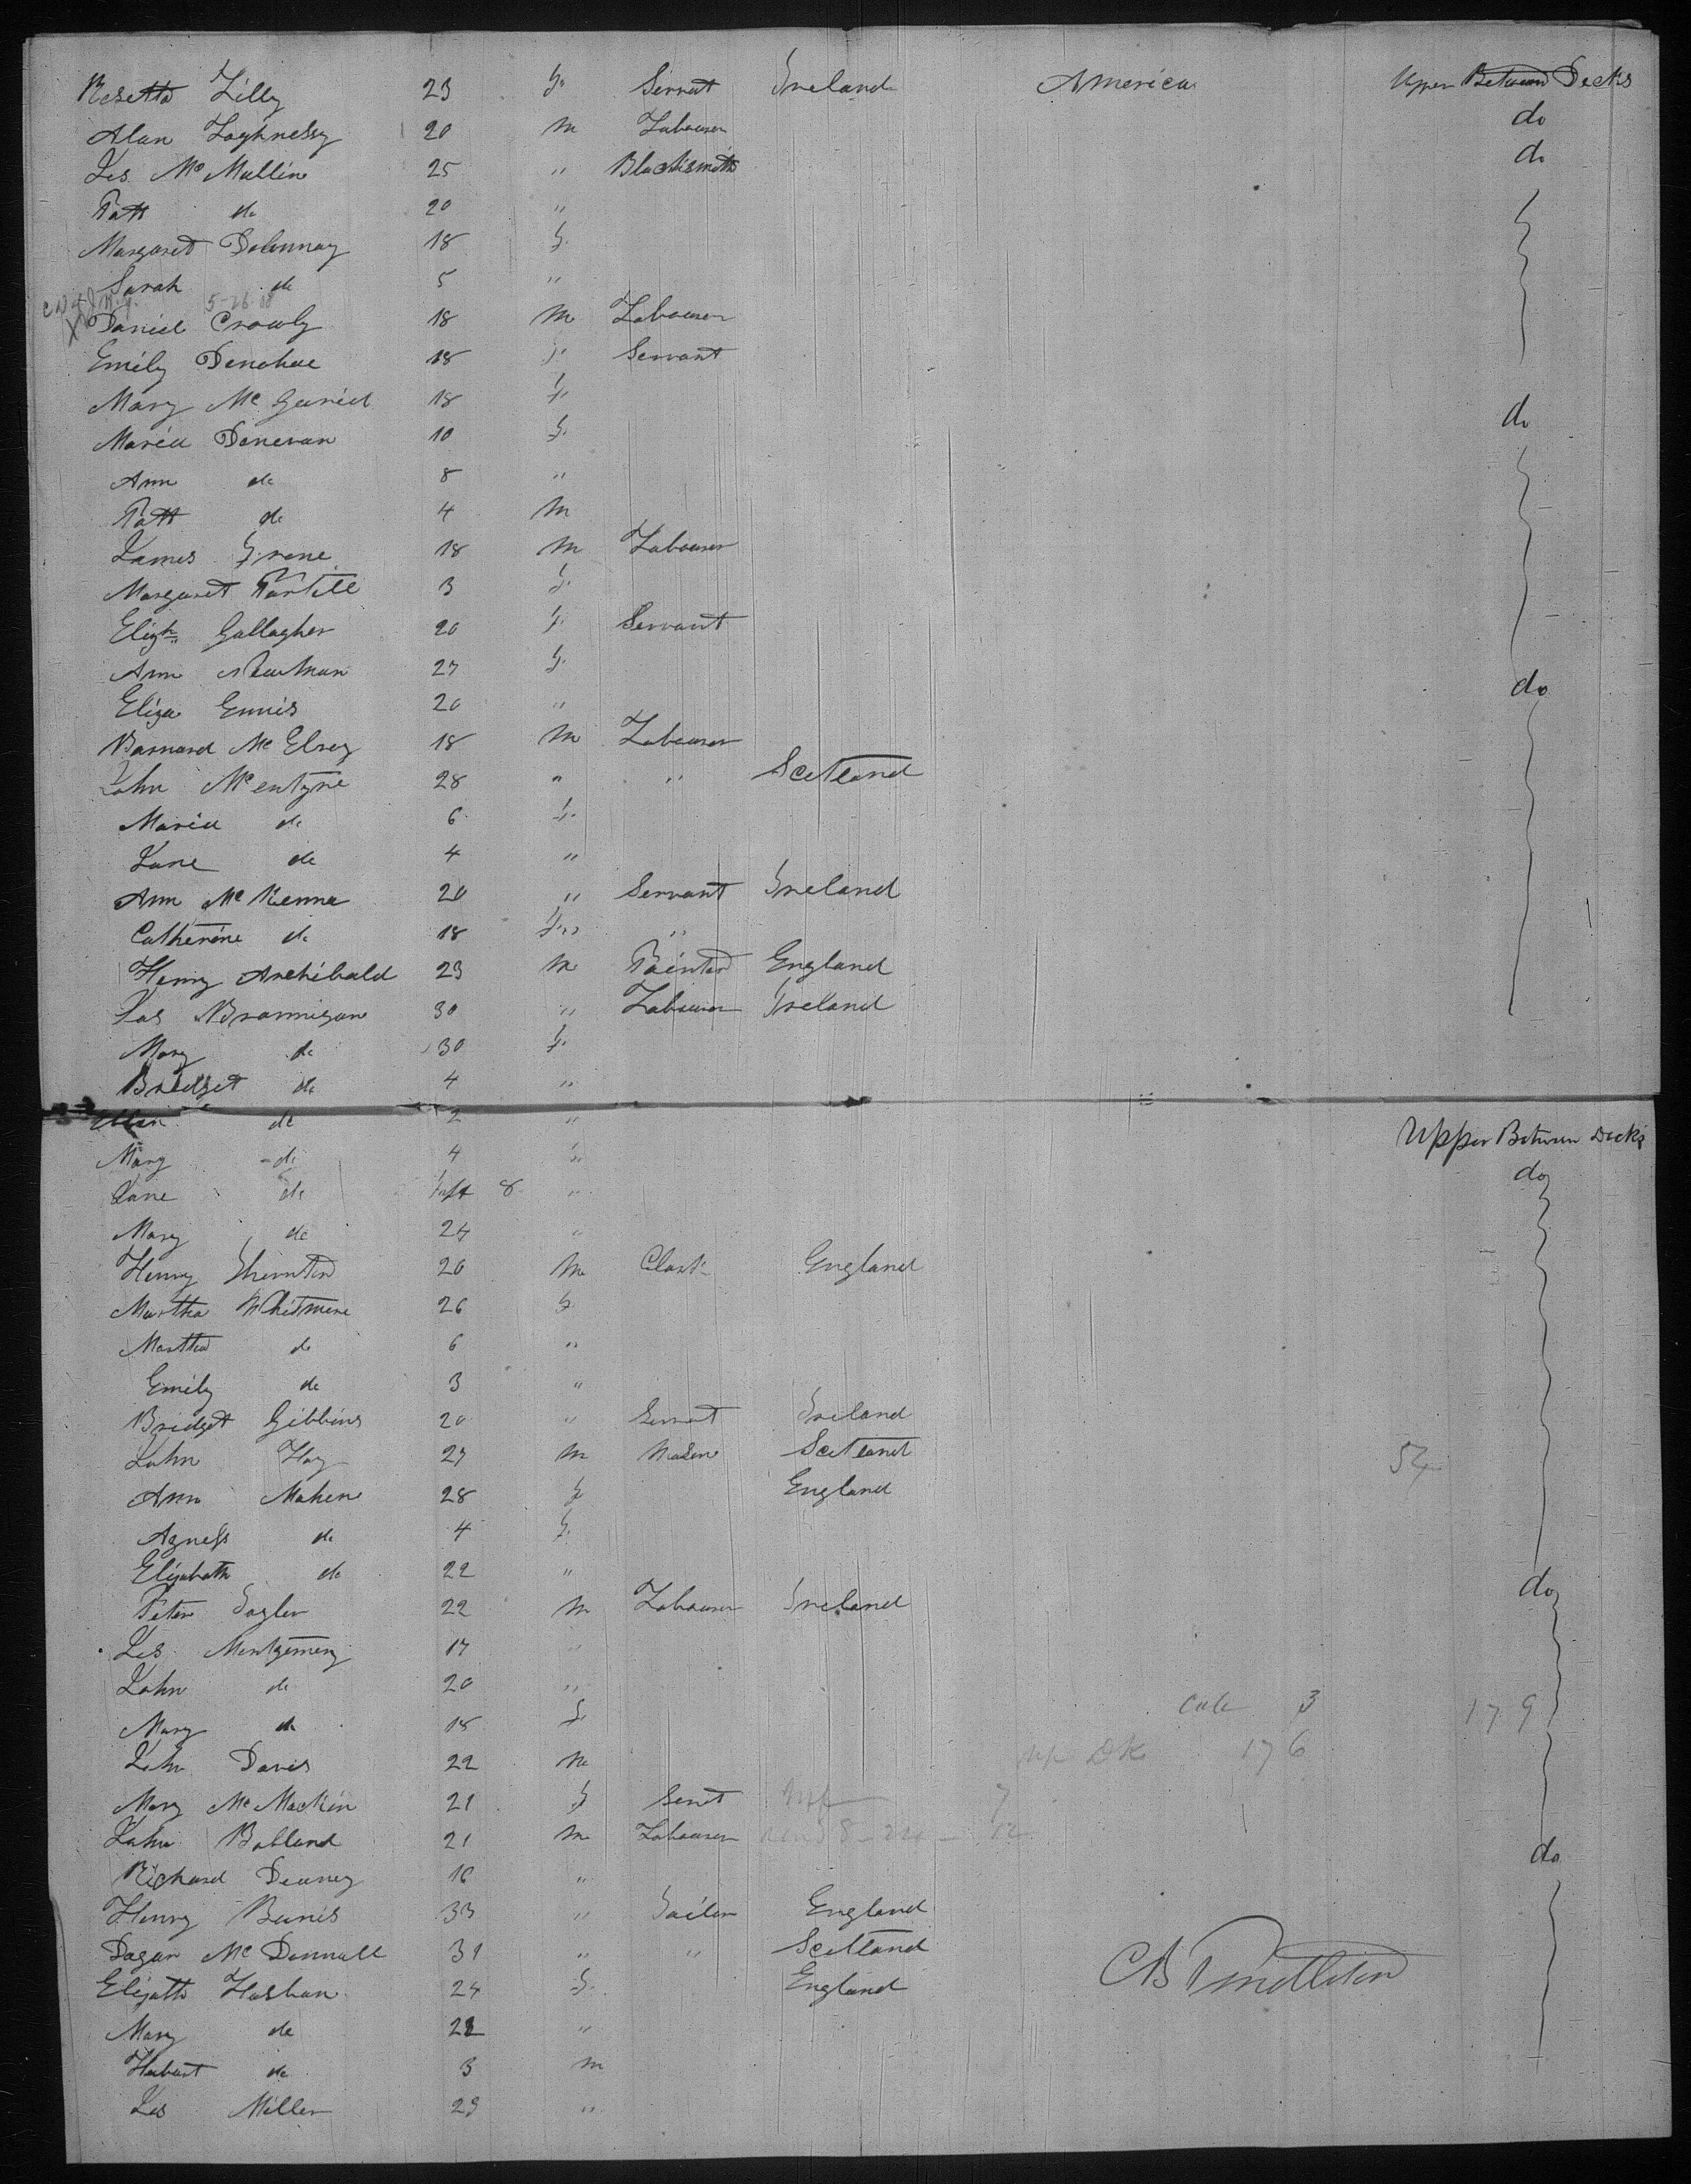 Rosetta Lilly 23 F. Servat Ireland America Upper Between Decks
Alan Loghnessy 20 M Labourer do
Jas Mc Mullin 25 " Blacksmith do
Patt do 20 "
Margaret Dolunnay 18 F.
Sarah do 5 "
5-26
Daniel Crowly 18 M Labourer
Emily Donohue 18 F. Servant
Mary Mc 18 F. do
Maria Donevan 10 F.
Ann do 8 "
Patt do 4 M
James Frone 18 M Labourer
Margaret 3 F.
Elizth Gallagher 20 F. Servant
Ann Newman 27 F.
Eliza Ennis 20 " do
Barnard Mc Elroy 18 M Labourer
John Mcentyre 28 " " Scotland
Maria do 6 F.
Jane do 4 "
Ann Mc Kenna 20 " Servant Ireland
Catherine do 18 F. "
Henry Archibald 23 M Painter England
Jas Brannigan 30 " Labourer Ireland
Mary do 30 F.
Bridget do 4 "
Ellen do 2 " Upper Between Decks
Mary do 4 " do
Jane do Inft 8 "
Mary do 24 "
Henry Thornton 20 M Clark England
Martha Whitmore 26 F.
Martha do 6 "
Emily do 3 "
Bridget Gibbins 20 " Servat Ireland
John Hay 27 M Mason Scotland 54
Ann Mahon 28 F England
Agness do 4 F.
Elizabeth do 22 " do
Peter 22 M Labourer Ireland
Jas Montgomery 17 "
John do 20 "
Mary do 18 F. Cab 3 179
John Davis 22 M up DK 176
Mary Mc Mackin 21 F Servt Inf 7
John Bolland 21 M Labourer do
Richard Deaney 16 "
Henry Bunis 33 " Sailor England
Dugan Mc Donnall 31 " " Scotland
Elizatth Hashan 24 F. England C B Pendleton
Mary do 22 "
Hubart do 3 M
Jas Miller 29 "